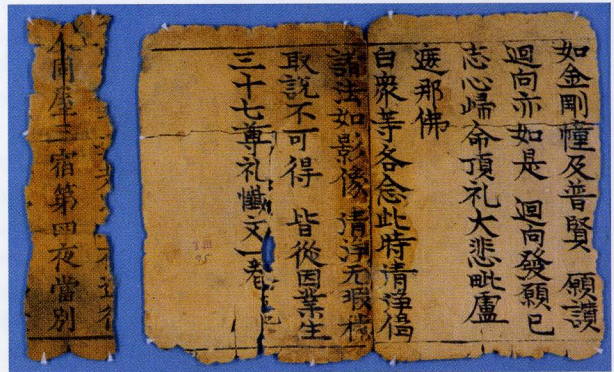 如金剛幢及普賢　願讚
迴向亦如是　迴向發願已
志心歸命頂礼大悲毗盧
遮那佛
白衆等各念此時清淨偈
諸法如影像　清淨无瑕穢
取說不可得　皆從因業生
三十七尊礼懺文一卷
人同屋三宿第四夜當別